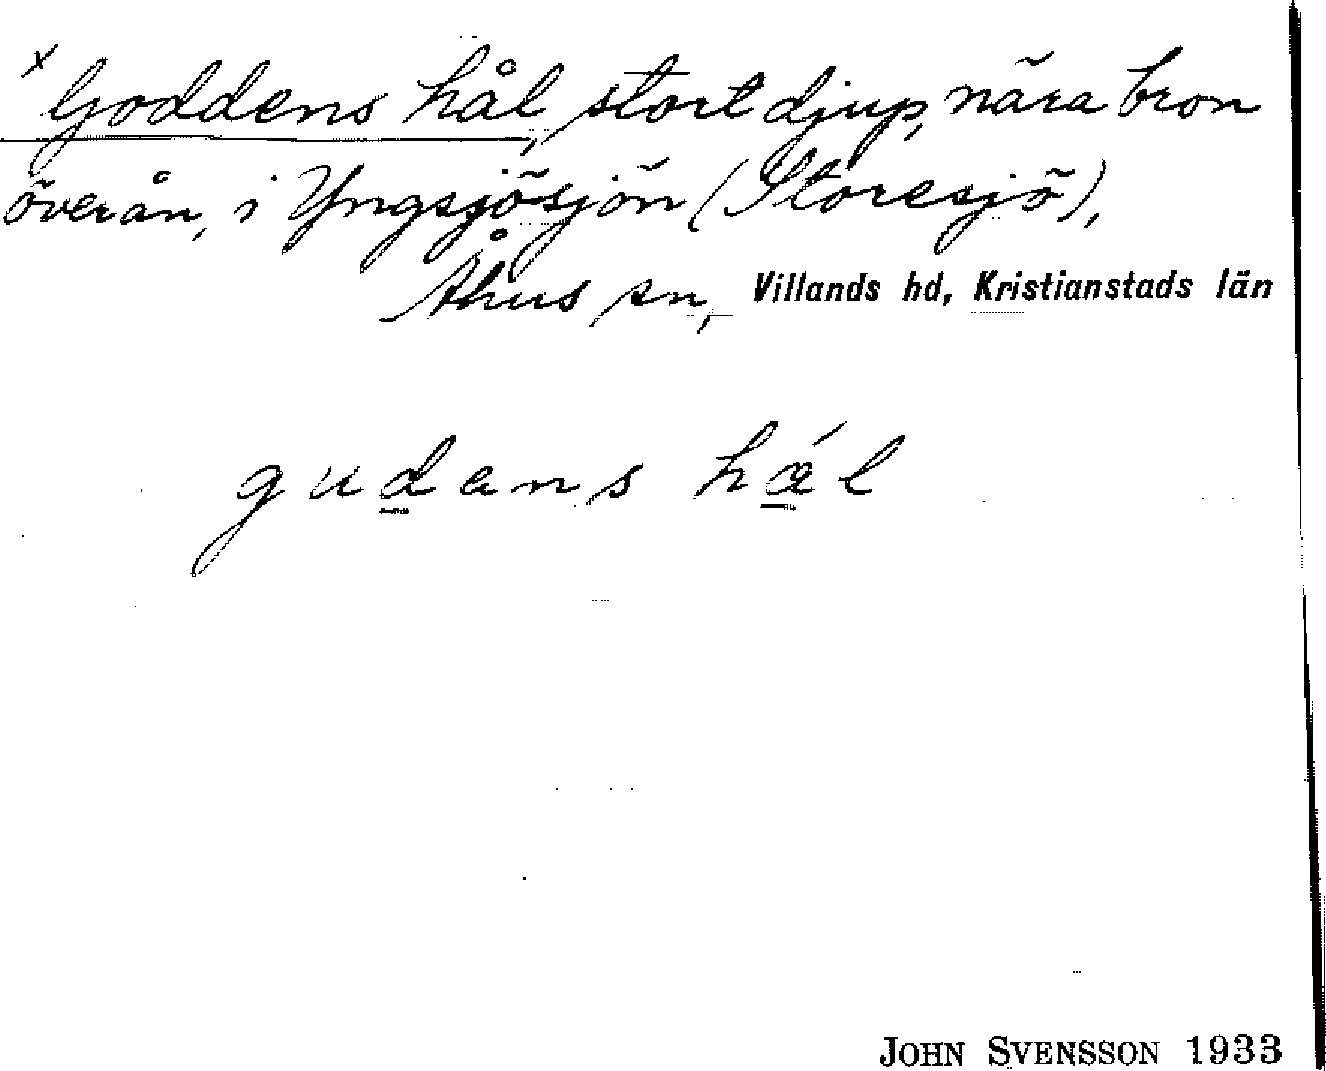 x Goddens hål, stort djup, nära bron
över ån, i Yngsjösjön (Storesjö),
Åhus sn, Villands hd, Kristianstads län
gudans hǽl
JOHN SVENSSON 1933